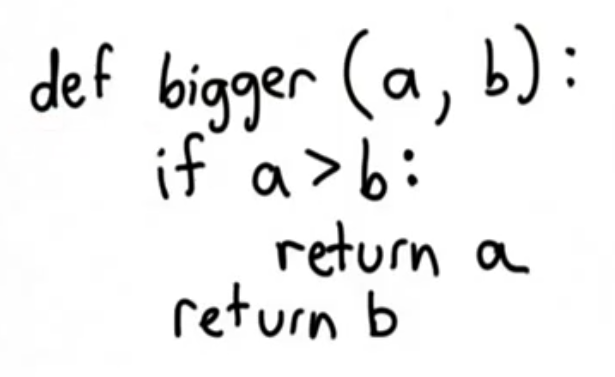 def bigger (a, b):
if a > b:
return a
return b